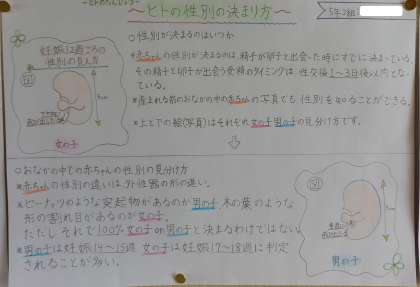 〜ヒトの性別の決まり方〜
5年2組
○性別が決まるのはいつか
*赤ちゃんの性別が決まるのは、精子が卵子と出会った時にすでに決まっている。
その精子と卵子が出会う受精のタイミングは、性交後1〜3日後以内となっ
ている。
*産まれる前のおなかの中の赤ちゃんの写真でも性別を知ることができる。
*上と下の絵(写真)はそれぞれ女の子男の子の見分け方です。
妊娠12週ごろの
性別の見え方
女の子
○おなかの中での赤ちゃんの性別の見分け方
*赤ちゃんの性別の違いは、外性器の形の違い。
*ピーナッツのような突起物があるのが男の子 木の葉のような
形の割れ目があるのが女の子。
ただしそれで100%女の子or男の子と決まるわけではない。
*男の子は妊娠14〜15週 女の子は妊娠17〜18週に判定
されることが多い。
男の子